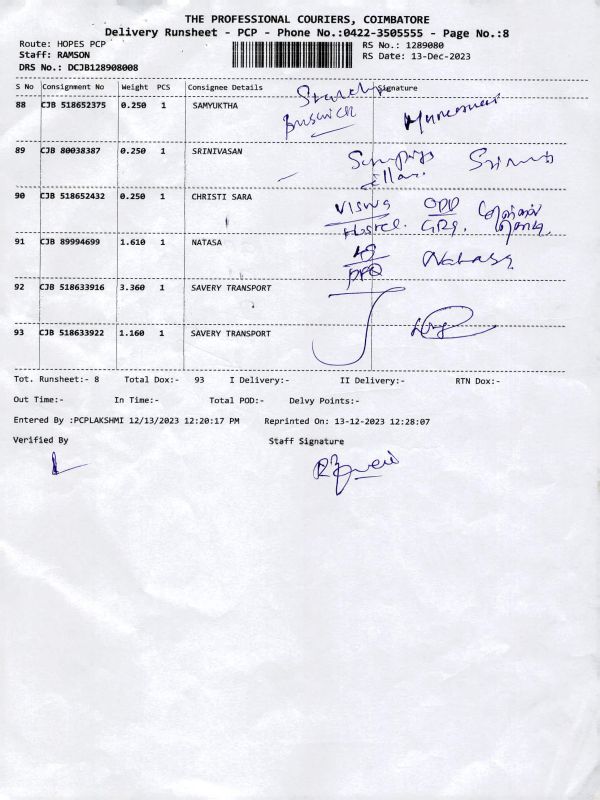 THE PROFESSIONAL COURIERS, COIMBATORE
Delivery Runsheet - PCP - Phone No.:0422-3505555 - Page No.:8
Route: HOPES PCP RS No.: 1289080
Staff: RAMSON RS Date: 13-Dec-2023
DRS No.: DCJB128908008
S No Consignment No Weight PCS Consignee Details Signature
88 CJB 518652375 0.250 1 SAMYUKTHA
89 CJB 80038387 0.250 1 SRINIVASAN
90 CJB 518652432 0.250 1 CHRISTI SARA
Hostel
91 CJB 89994699 1.610 1 NATASA
Natasa
92 CJB 518633916 3.360 1 SAVERY TRANSPORT
93 CJB 518633922 1.160 1 SAVERY TRANSPORT
Tot. Runsheet:- 8 Total Dox:- 93 I Delivery:- II Delivery:- RTN Dox:-
Out Time:- In Time:- Total POD:- Delvy Points:-
Entered By :PCPLAKSHMI 12/13/2023 12:20:17 PM Reprinted On: 13-12-2023 12:28:07
Verified By Staff Signature